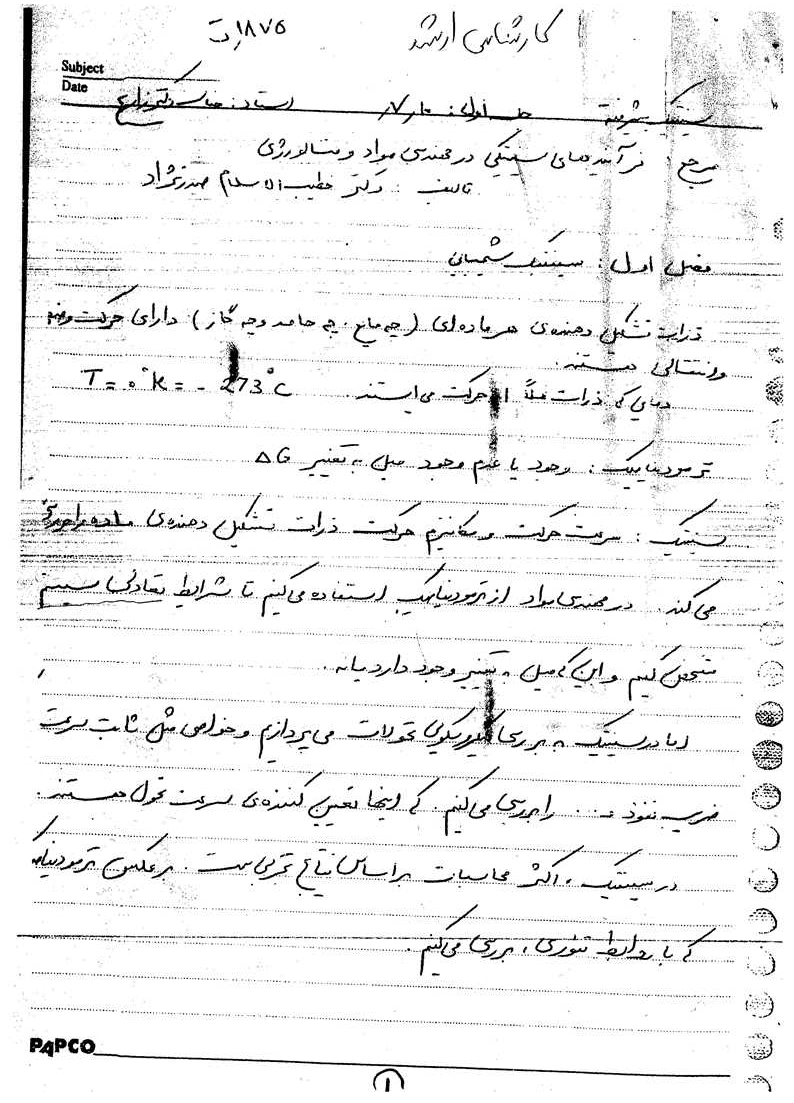 کارشناسی ارشد
۱۸۷۵ت
Subject
Date
سینتیک پیشرفته جلسه اول: استاد: جناب دکتر
مرجع: فرآیندهای سینتیکی در مهندسی مواد و متالورژی
تالیف: دکتر خطیب الاسلام صدرنژاد
فصل اول: سینتیک شیمیایی
ذرات تشکیل دهنده‌ی هر ماده‌ای (چه مایع، چه جامد و چه گاز) دارای حرکت
و انتقالی هستند.
دمایی که ذرات عملاً از حرکت می‌ایستند. T = 0°K = -273°C
ترمودینامیک: وجود یا عدم وجود میل به تغییر ΔG
سینتیک: سرعت حرکت و مکانیزم حرکت ذرات تشکیل دهنده‌ی ماده را بررسی
می‌کند. در مهندسی مواد از ترمودینامیک استفاده می‌کنیم تا شرایط تعادلی سیستم
مشخص کنیم و این که میل به تغییر وجود دارد یا نه.
اما در سینتیک به بررسی میکروسکوپی تحولات می‌پردازیم و خواصی مثل ثابت سرعت
ضریب نفوذ و ... را بررسی می‌کنیم. که اینها تعیین کننده‌ی سرعت تحول هستند.
در سینتیک، اکثر محاسبات بر اساس نتایج تجربی است. بر عکس ترمودینامیک
که با روابط تئوری، بررسی می‌کنیم.
PAPCO
۱